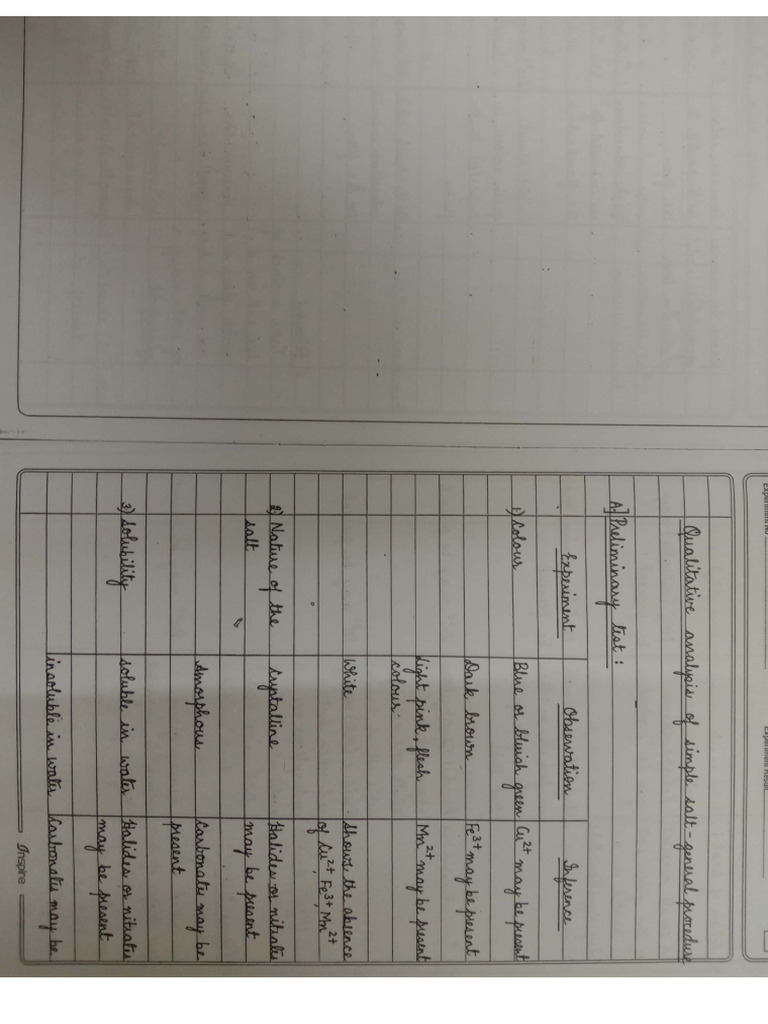 Experiment No
Experiment Result
Qualitative analysis of simple salt - general procedure
A] Preliminary test :
Experiment Observation Inference
1) Colour Blue or bluish green Cu2+ may be present
Dark brown Fe3+ may be present
Light pink, flesh Mn2+ may be present
colour.
White Shows the absence
of Cu2+, Fe3+, Mn2+
2) Nature of the Cryptalline Halides or nitrates
salt. may be present
Amorphous Carbonates may be
present
3) Solubility soluble in water Halides or nitrates
may be present
insoluble in water Carbonates may be
Inspire